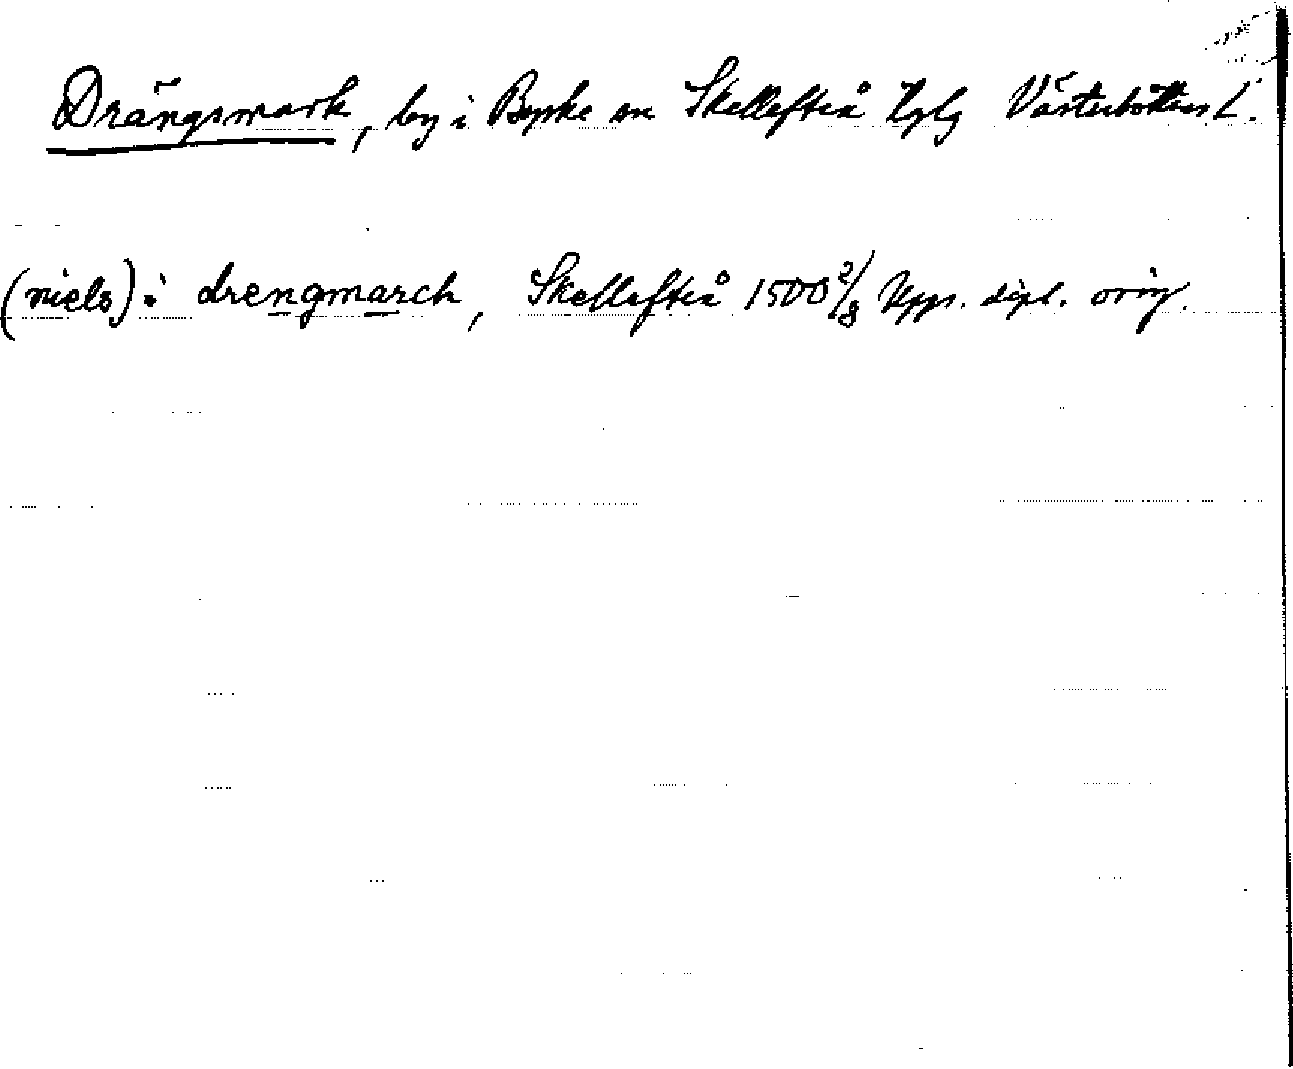 Drängsmark, by i Byske sn Skellefteå tgslg Västerbottens L.
(niels) i drengmarch, Skellefteå 1500 2/8 Upps. dipl. orig.